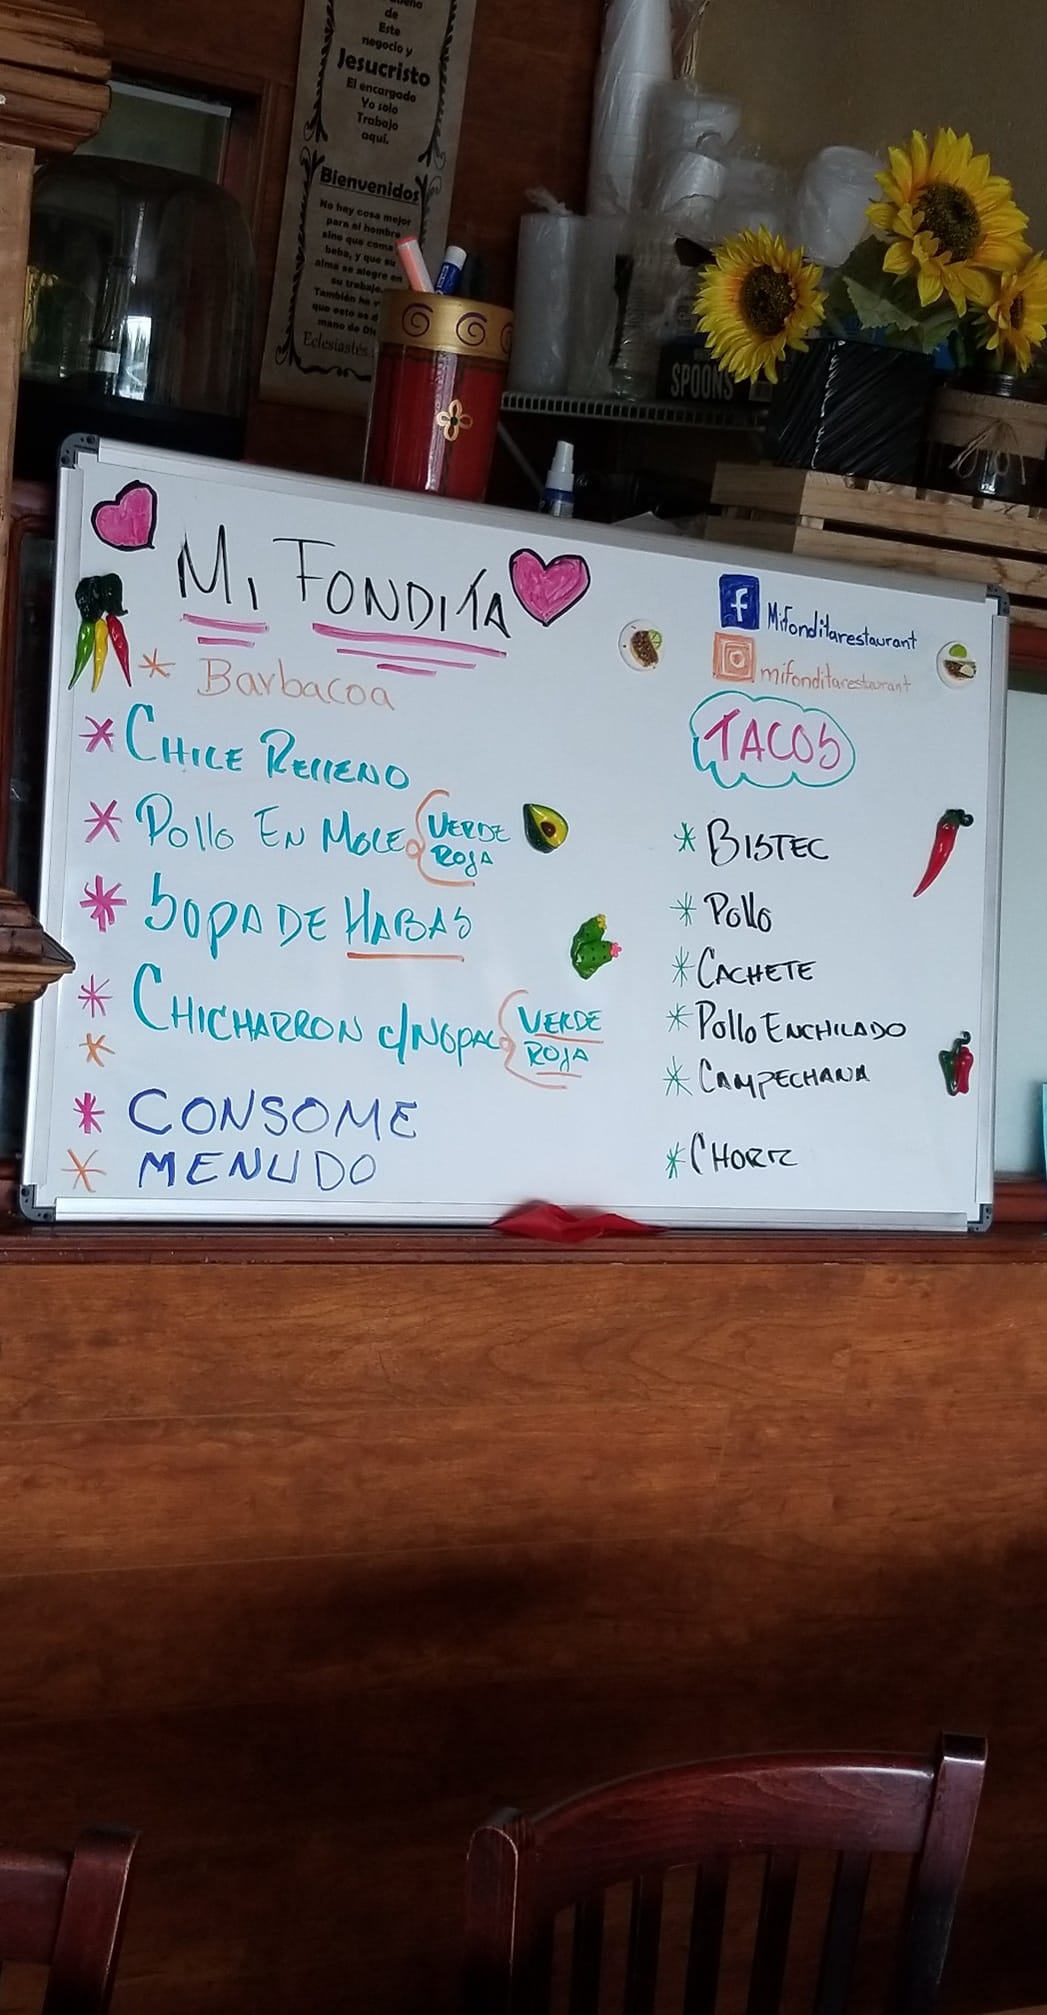 de
Este
negocio y
Jesucristo
El encargado
Yo solo
Trabajo
aquí.
Bienvenidos
No hay cosa mejor
para el hombre
sino que coma
beba, y que su
alma se alegre en
su trabajo.
También he
que esto es d
mano de Di
Eclesiastés
SPOONS
MI FONDITA
* Barbacoa
* CHILE RELLENO
* Pollo EN MOLE VERDE
ROJA
* SOPA DE HABAS
* CHICHARRON C/NOPAL VERDE
ROJA
*
* CONSOME
* MENUDO
f Mifonditarestaurant
mifonditarestaurant
TACOS
* BISTEC
* Pollo
* CACHETE
* Pollo ENCHILADO
* CAMPECHANA
* CHORIZ